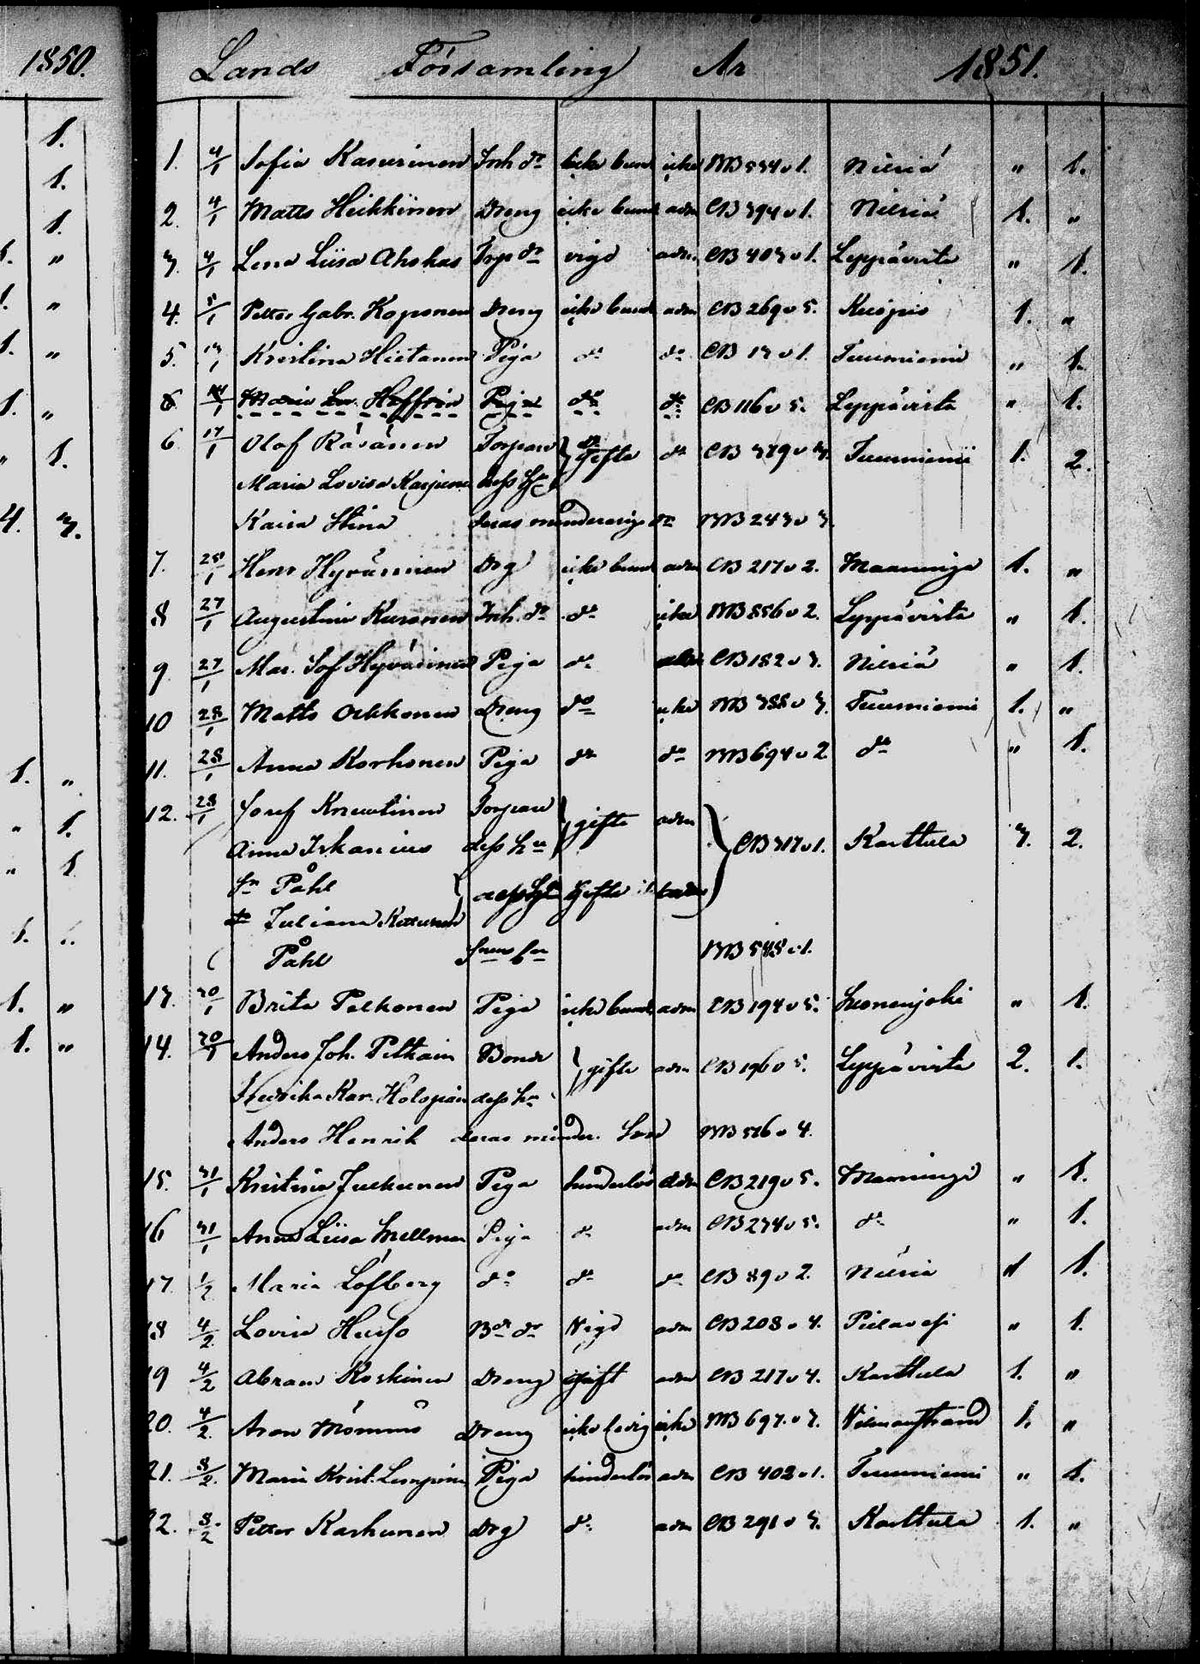 1850.
Lands Församling År 1851.
1. 4/1 Sofia Kasurinen Inh. dr icke bund icke MB 554 v 1. Nilsiä " 1.
2. 4/1 Matts Heikkinen Dreng icke bund adm CB 394 v 1. Nilsiä 1. "
3. 4/1 Lena Liisa Ahokas Torp dr vigd adm CB 403 v 1. Leppävirta " 1.
4. 8/1 Petter Gabr. Koponen Dreng icke bund adm CB 269 v 5. Kuopio 1. "
5. 13/1 Kristina Hietanen Piga do do CB 13 v 1. Tuusniemi " 1.
6 14/1 Maria Piga do do CB 116 v 5. Leppävirta " 1.
6. 17/1 Olof Räsänen Torpare gifte do CB 379 v 3. Tuusniemi 1. 2.
Maria Lovisa dess h.
Kaisa Stina deras minderåriga dr MB 243 v 3.
7. 25/1 Henr Hyvärinen Drg icke bund adm CB 217 v 2. Maaninga 1. "
8 27/1 Augustina Kuronen Inh. dr do icke MB 856 v 2. Leppävirta " 1.
9 27/1 Mar. Sof Hyvärinen Piga do CB 182 v 3. Nilsiä " 1.
10 28/1 Matts Ockkonen Dreng do icke MB 388 v 3. Tuusniemi 1. "
11. 28/1 Anna Korhonen Piga do do MB 694 v 2 do " 1.
12. 28/1 Josef Torpare gifte adm CB 317 v 1. Karttula 3. 2.
Anna dess h.
Sn Påhl gifte
Juliana
Påhl Sons son MB 548 v 1.
13. 30/1 Brita Pelkonen Piga icke bund adm CB 194 v 5. Suonenjoki " 1.
14. 30/1 Anders Joh. Bonde gifte adm CB 196 v 5. Leppävirta 2. 1.
Fredrika Kar. Holopain dess h.
Anders Henrik deras minder. Son MB 516 v 4.
15. 31/1 Kristina Juckunen Piga hinderlös adm CB 219 v 5. Maaninga " 1.
16 31/1 Anna Liisa Snellman Piga do adm CB 234 v 5. do " 1.
17. 1/2 Maria Löfberg do do do CB 89 v 2. Nilsiä " 1.
18 4/2 Lovisa Husso Bde dr Vigd adm CB 208 v 4. Pielavesi " 1.
19 4/2 Abram Koskinen Dreng gift adm CB 217 v 4. Karttula 1. "
20. 4/2 Aron Mömmö Dreng icke ledig icke MB 697 v 3. Vilmanstrand 1. "
21. 8/2 Maria Krist. Piga hinderlös adm CB 402 v 1. Tuusniemi " 1.
22. 8/2 Petter Karhunen Drg do adm CB 291 v 3. Karttula 1. "